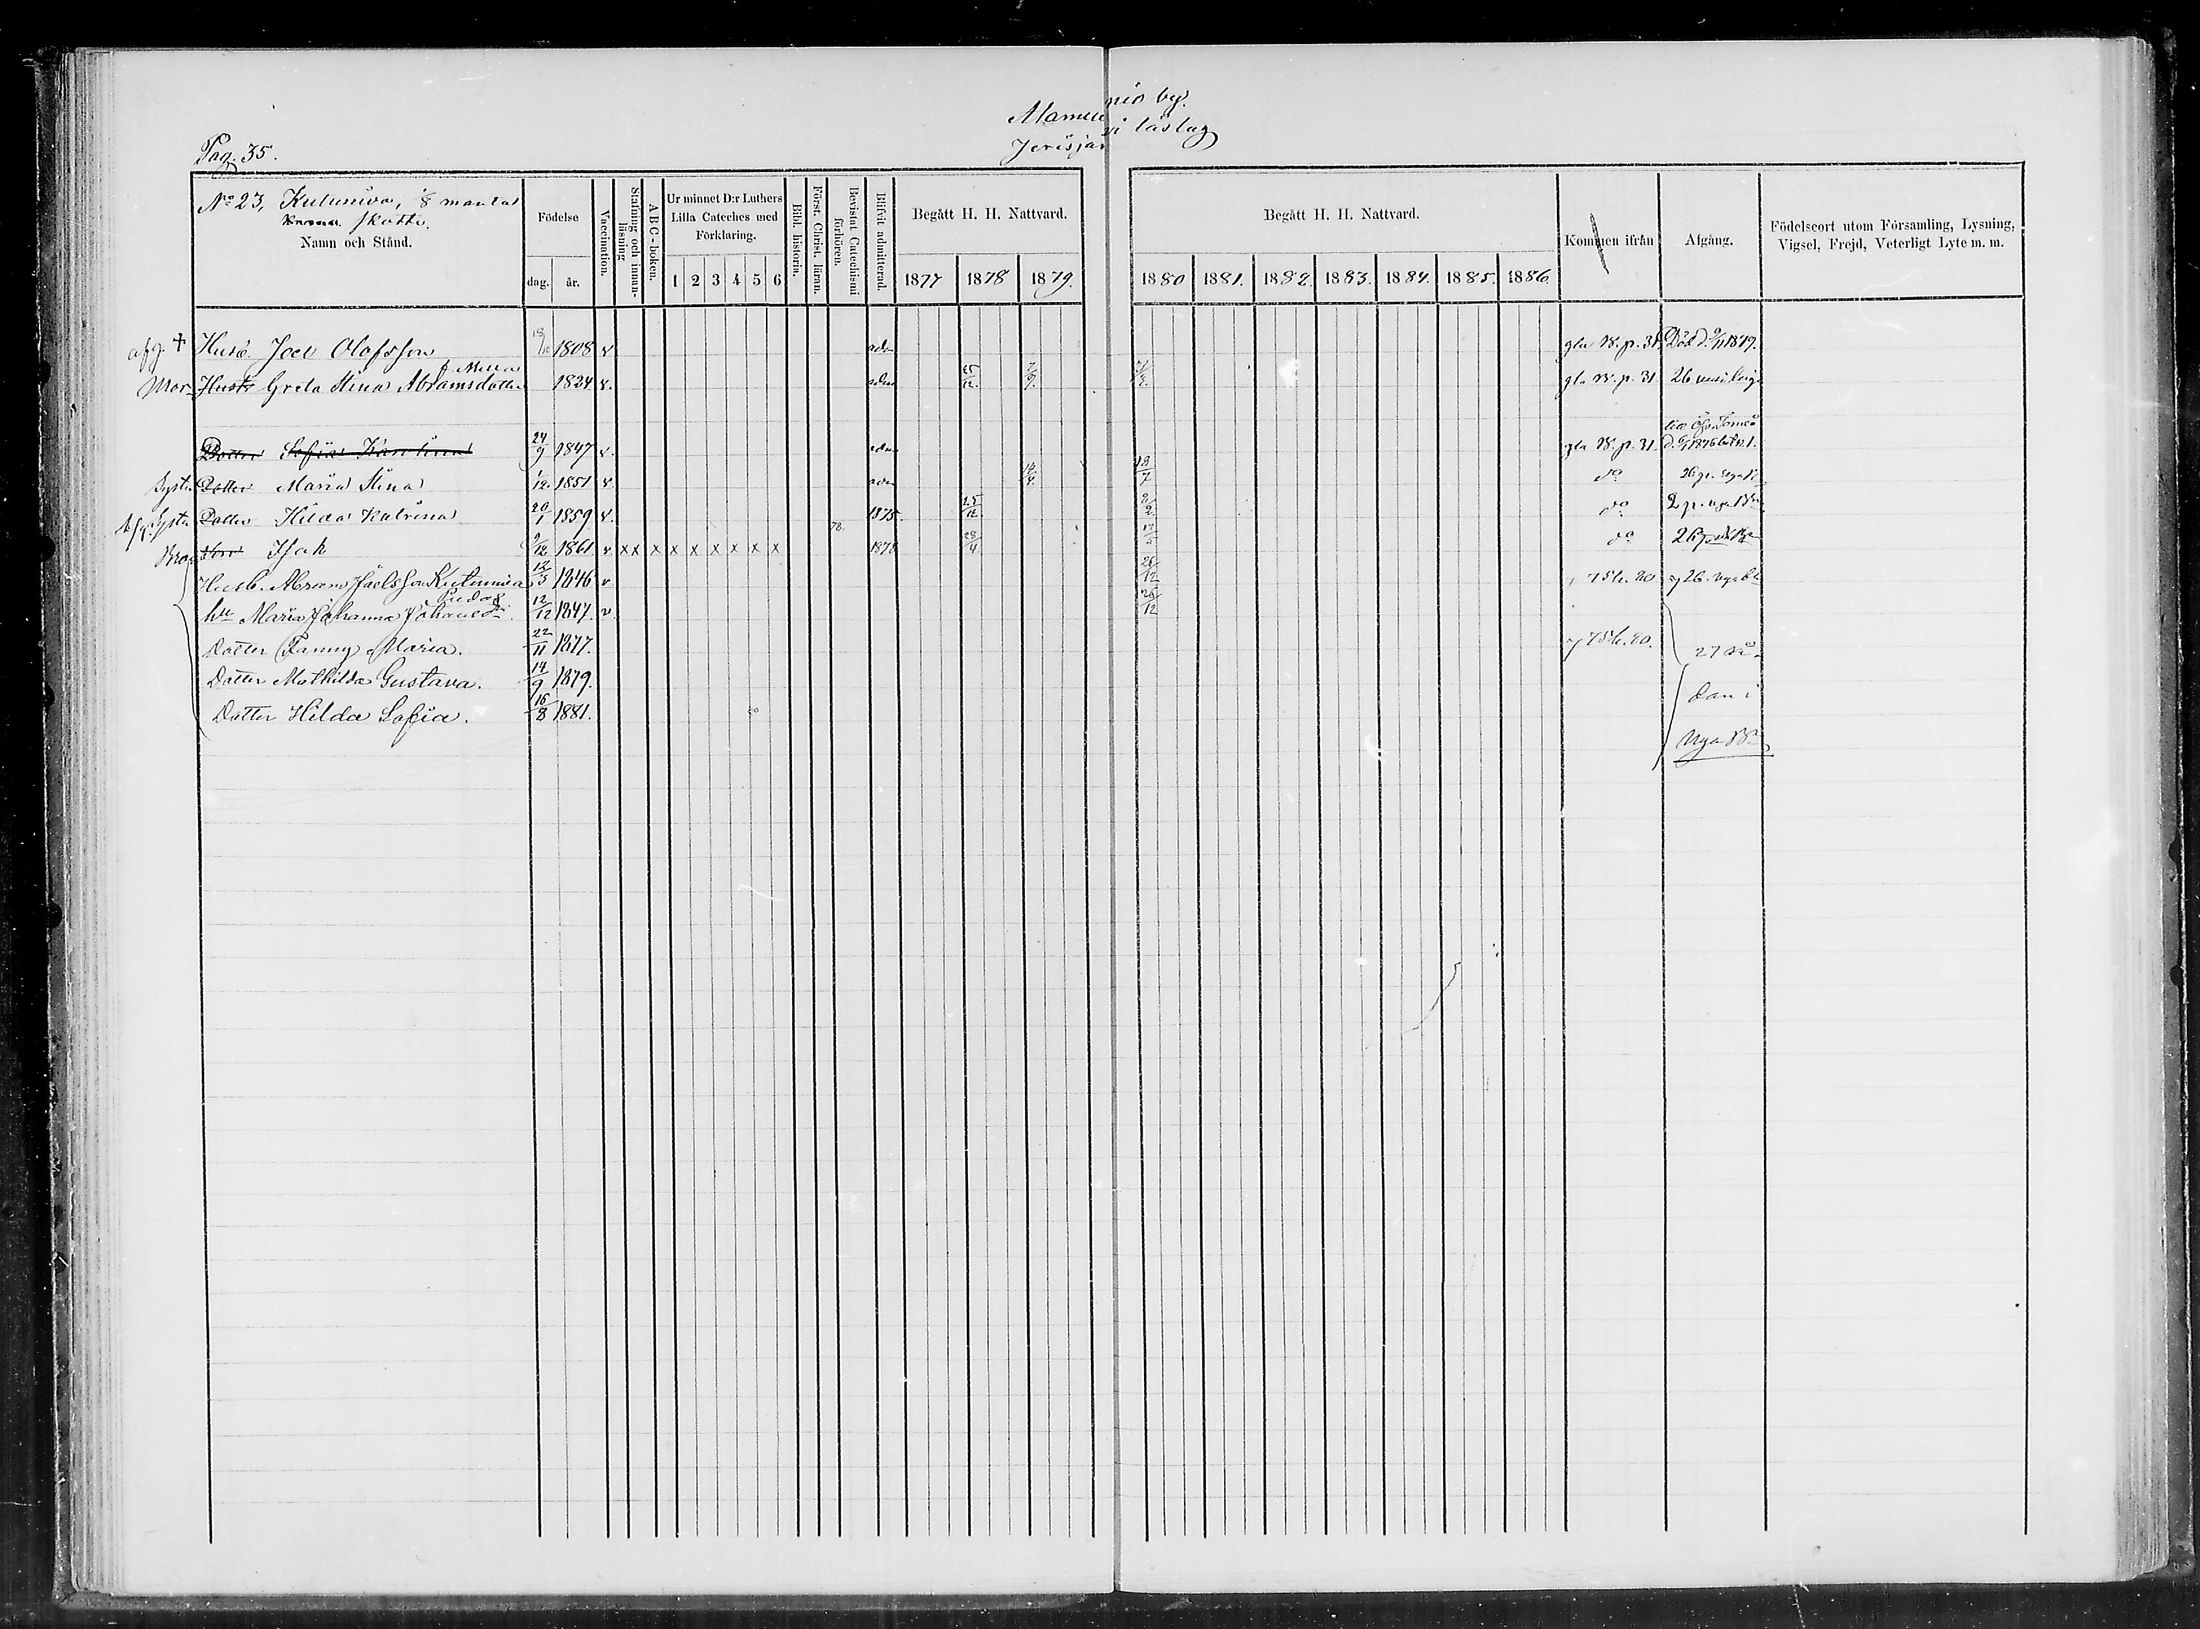 Pag. 35.
Jerisjärvi läslag
No 23, Kutuniva, 1/8 mantal
Krono skatte.
Namn och Stånd.
Födelse
dag.
år.
Vaccination.
Stafning och innan-läsning
ABC-boken.
Ur minnet D:r Luthers
Lilla Cateches med
Förklaring.
1 2 3 4 5 6
Bibl. historia.
Först. Christ. läran.
Bevistat Catechismi förhören.
Blifvit admitterad.
Begått H. H. Nattvard.
1877 1878 1879.
Begått H. H. Nattvard.
1880 1881. 1882. 1883. 1884. 1885. 1886.
Kommen ifrån
Afgång.
Födelseort utom Församling, Lysning,
Vigsel, Frejd, Veterligt Lyte m. m.
afg. + Husb. Joel Olofsson 18/10 1808 v adm gla B. p. 31. Död d. 9/11 1879.
Mor Hustr Greta Stina Abramsdotter 1824 v. adm 25/12. gla B. p. 31. 26
Dotter Sofia Karolina 24/9 1847 v. adm gla B. p. 31.
Syster Dotter Maria Stina 1/12. 1851 v adm 18/7 do 26 p. nya B
Afg. Syster Dotter Hilda Katrina 20/1 1859 v. 1875. 25/12 2/2 do 2 p. nya B
Bror Son Isak 9/12 1861 v. x x x x x x x x x 78. 1878 28/4 17/5 do 26 p.
Husb. Abram Joelsson Kutuniva 12/5 1846 v 26/12 26. nya b
hu Maria Johanna Johansdr. 12/12 1847. v 26/12
Dotter Fanny Maria. 22/11 1877.
Dotter Mathilda Gustava. 14/9 1879.
Dotter Hilda Sofia. 16/8 1881.
27
dan i
Nya B